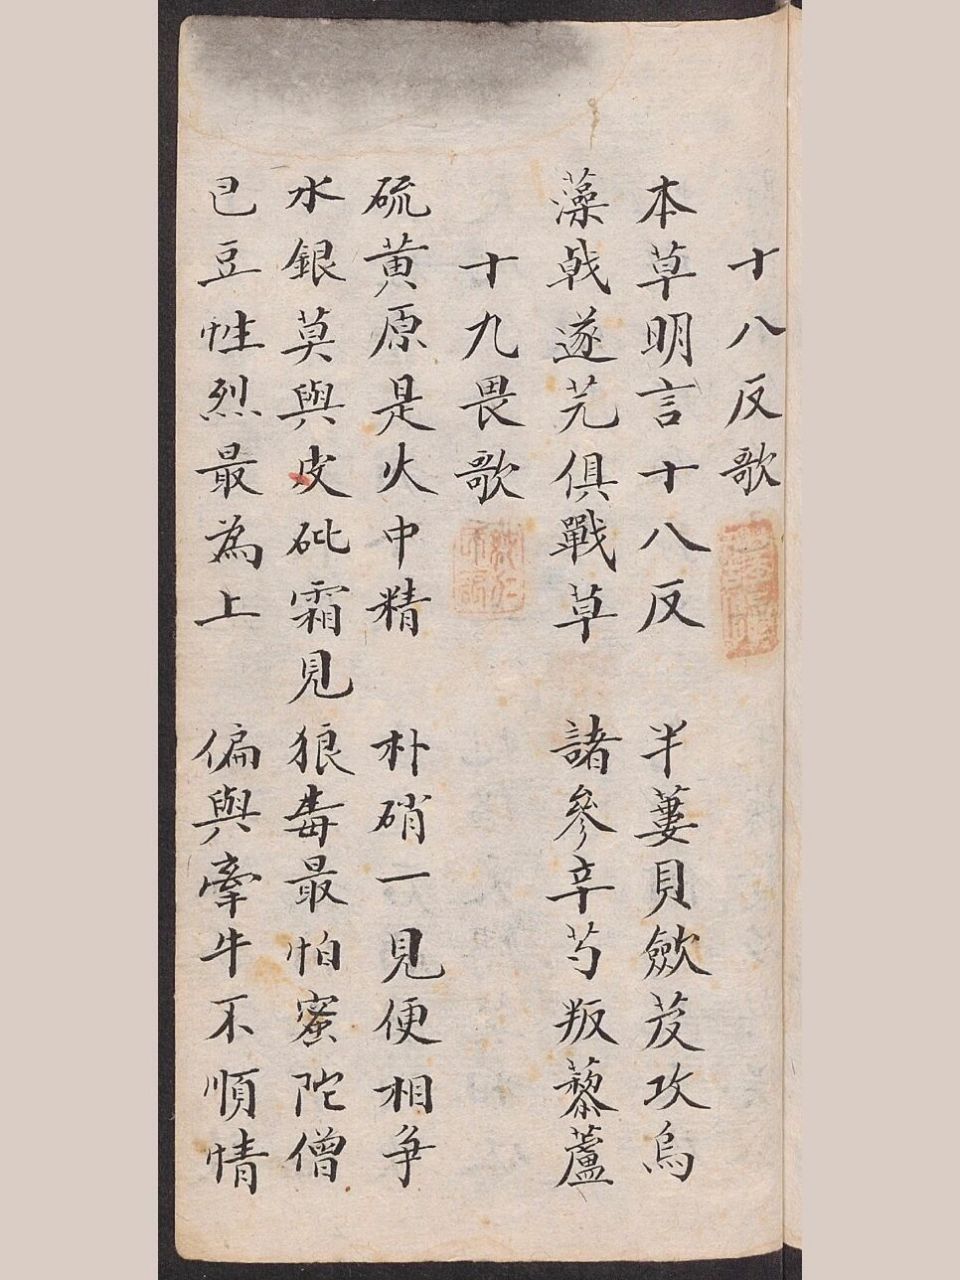 十八反歌
本草明言十八反 半蔞貝歛芨攻烏
藻戟遂芫俱戰草 諸參辛芍叛藜蘆
十九畏歌
硫黄原是火中精 朴硝一見便相争
水銀莫與皮砒霜見 狼毒最怕蜜陀僧
巴豆性烈最為上 偏與牽牛不順情